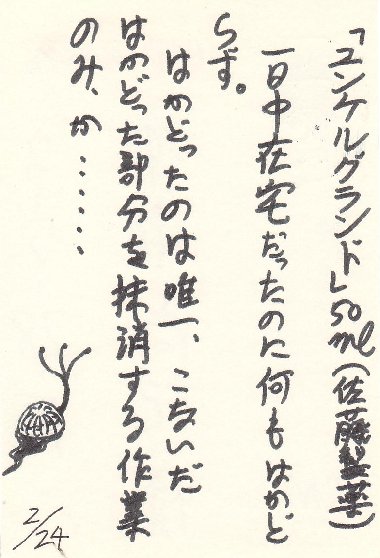 「ユンケルグランド」50ml(佐藤製薬)
一日中在宅だったのに何もはかど
らず。
はかどったのは唯一、こないだ
はかどった部分を抹消する作業
のみ、か……
2/24